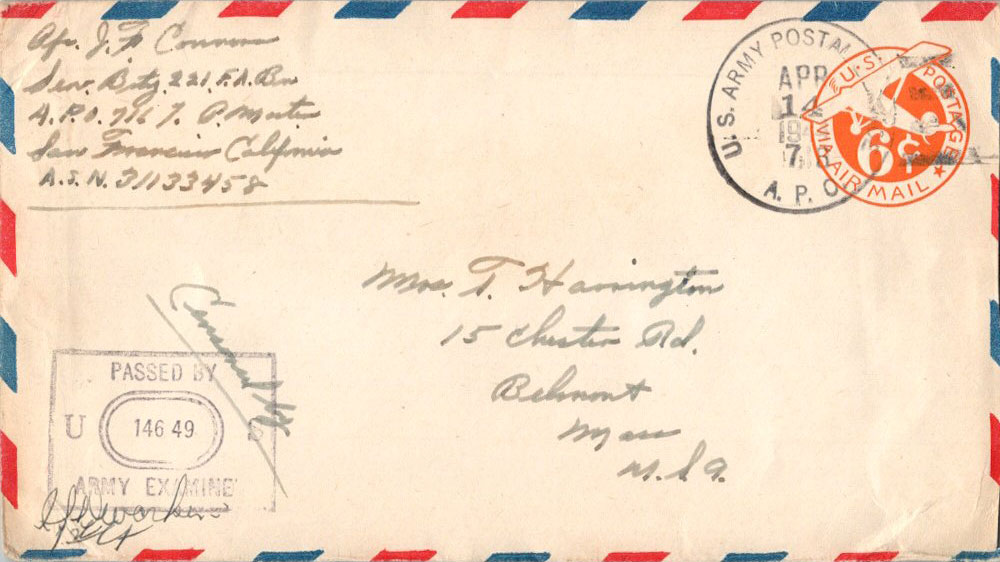 Pfc. J. F. Connors
Ser. Bty. 221 F.A. Bn
A.P.O. 7167. P. Master
San Francisco California
A.S.N. 31133458
U.S. ARMY POSTAL
APR
14
A.P.O.
U.S. POSTAGE
6¢
VIA AIR MAIL
Mrs. T. Harrington
15 Chester Rd.
Belmont
Mass
U.S.A.
Censored
PASSED BY
U 146 49 S
ARMY EXAMINE